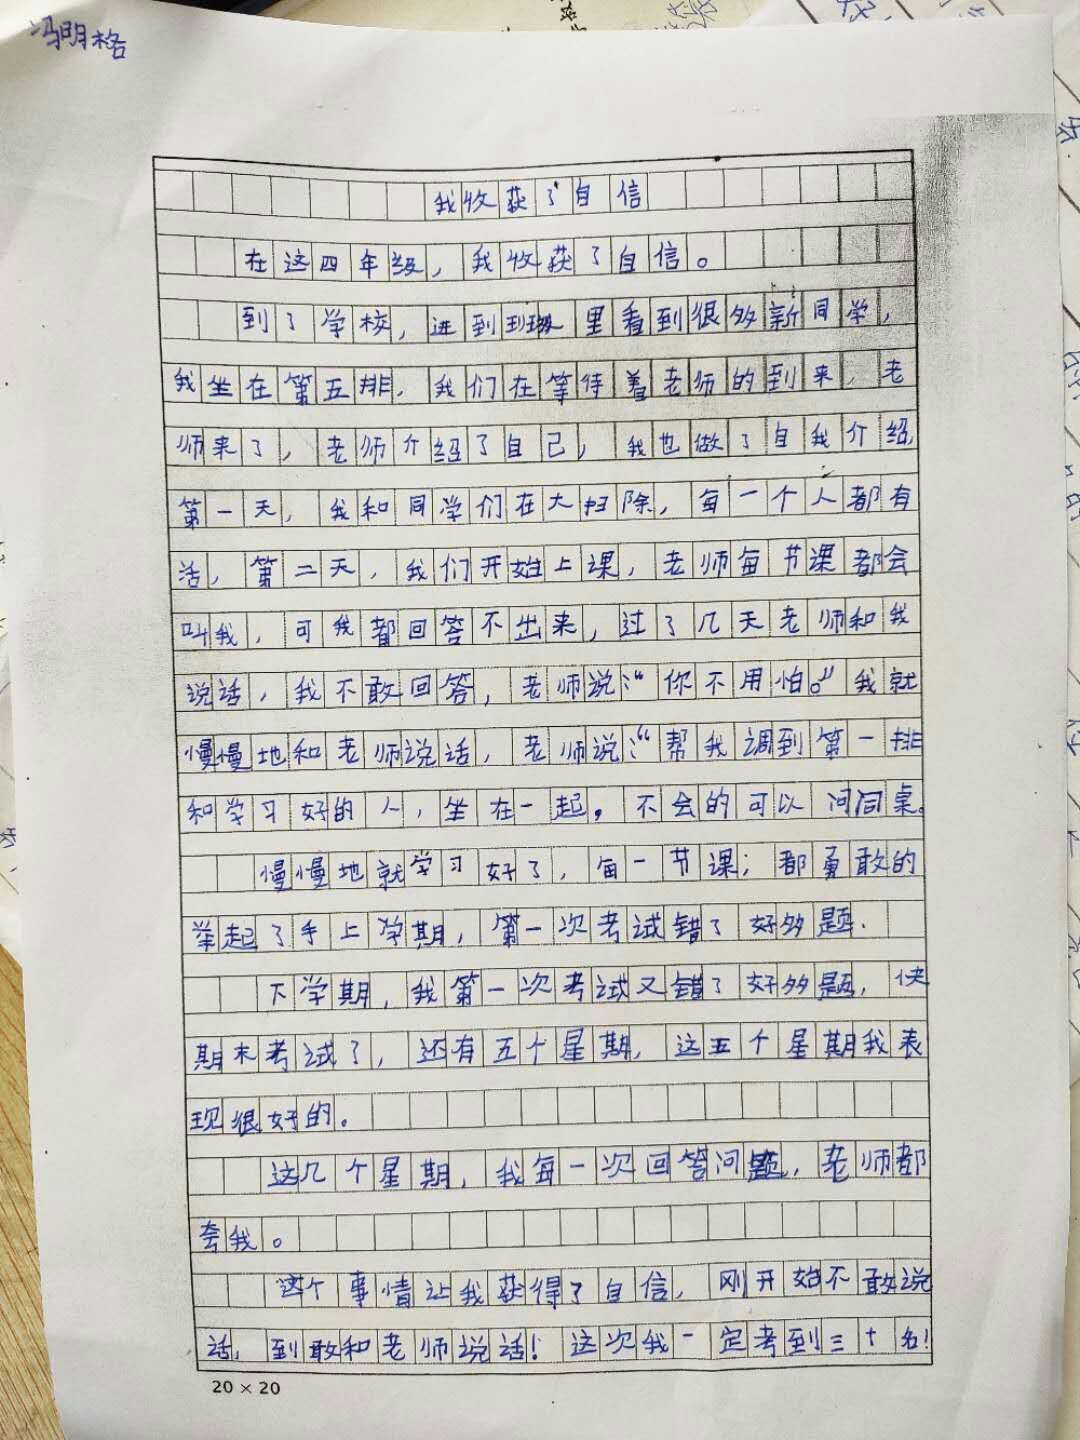 冯明格
我收获了自信
在这四年级，我收获了自信。
到了学校，进到班里看到很多新同学，
我坐在第五排，我们在等待着老师的到来，老
师来了，老师介绍了自己，我也做了自我介绍，
第一天，我和同学们在大扫除，每一个人都有
活，第二天，我们开始上课，老师每节课都会
叫我，可我都回答不出来，过了几天老师和我
说话，我不敢回答，老师说：“你不用怕。”我就
慢慢地和老师说话，老师说：“帮我调到第一排
和学习好的人，坐在一起。不会的可以问同桌。
慢慢地就学习好了，每一节课；都勇敢的
举起了手上学期，第一次考试错了好多题.
下学期，我第一次考试又错了好多题，快
期末考试了，还有五个星期，这五个星期我表
现很好的。
这几个星期，我每一次回答问题，老师都
夸我。
这个事情让我获得了自信，刚开始不敢说
话，到敢和老师说话！这次我一定考到三十名！
20×20